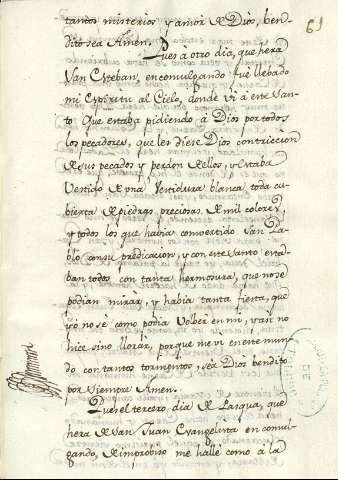 61
tantos misterios y amor de Dios, ben-
dito sea Amen.
Pues á otro dia, que hera
San Esteban, en comulgando fue llebado
mi espiritu al Cielo, donde vi á este San-
to que estaba pidiendo á Dios por todos
los pecadores, que les diese Dios contriccion
de sus pecados y perdon de ellos, y estaba
vestido de una vestidura blanca toda cu-
bierta de piedras preciosas de mil colores,
y todos los que habia convertido San Pa-
blo con su predicacion, y con este santo esta-
ban todos con tanta hermosura, que no se
podian mirar, y habia tanta fiesta, que
yo no se como podia volber en mi, y asi no
hice sino llorar, porque me vi en este mun-
do con tantos tormentos, sea Dios bendito
por siempre Amen.
Pues el tercero dia de Pasqua, que
hera de San Juan Evangelista en comul-
gando, de improbiso me hallé como á la